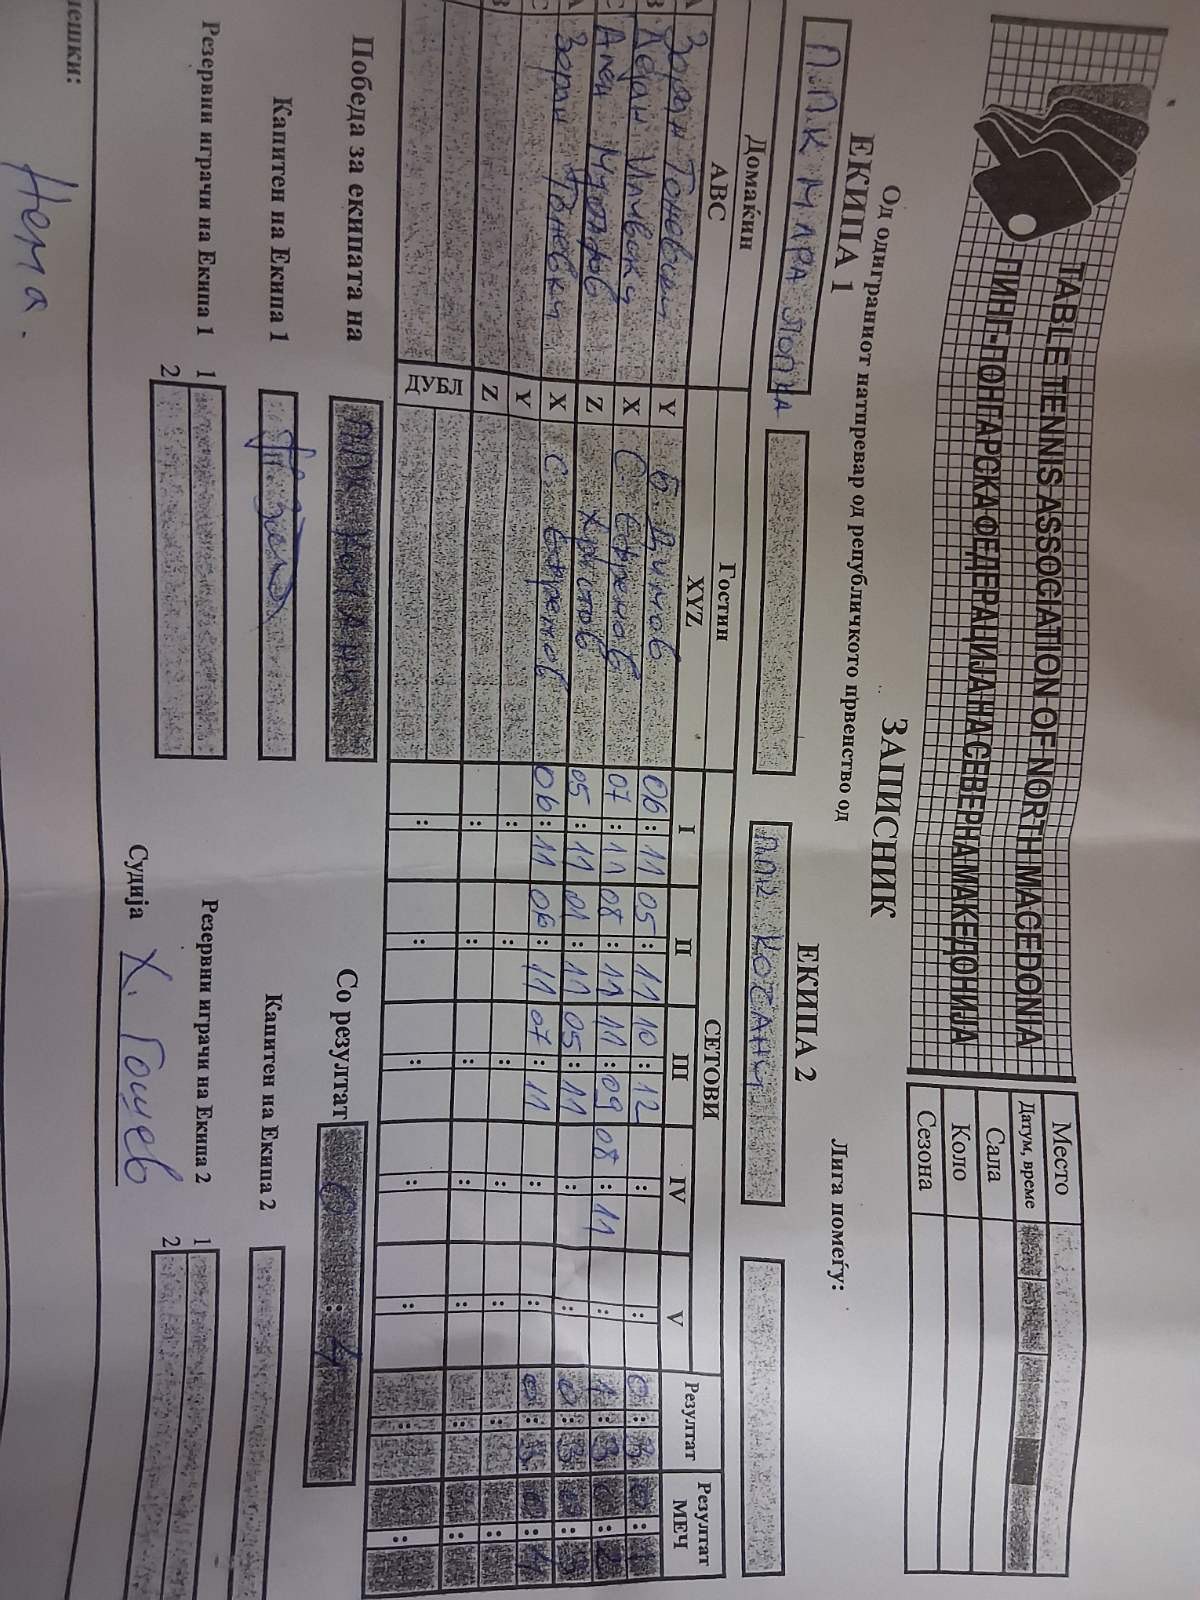 TABLE TENNIS ASSOCIATION OF NORTH MACEDONIA
ПИНГ-ПОНГАРСКА ФЕДЕРАЦИЈА НА СЕВЕРНА МАКЕДОНИЈА
Место
Датум, време
Сала
Коло
Сезона
ЗАПИСНИК
Од одиграниот натпревар од републичкото првенство од
Лига помеѓу:
ЕКИПА 1
ЕКИПА 2
П.П.К МЛАА ТОПКА
ППК КОЧАНИ
Домаќин
Гостин
СЕТОВИ
Резултат
Резултат
МЕЧ
ABC
XYZ
I II III IV V
A Зоран Тоневски Y Б Димов 06:11 05:11 10:12 : : 0:3 0:1
B X С Ефремов 07:11 08:11 11:09 08:11 : 1:3 0:2
C Ален Z Христов 05:11 01:11 05:11 : : 0:3 0:3
A Зоран Тоневски X С Ефремов 06:11 06:11 07:11 : : 0:3 0:4
C Y : : : : : : :
B Z : : : : : : :
ДУБЛ : : : : : : :
Победа за екипата на ППК Кочани
Со резултат 0 : 4
Капитен на Екипа 1
Капитен на Екипа 2
Резервни играчи на Екипа 1 1
2
Резервни играчи на Екипа 2 1
2
Судија Х. Гошев
ешки:
Нема.